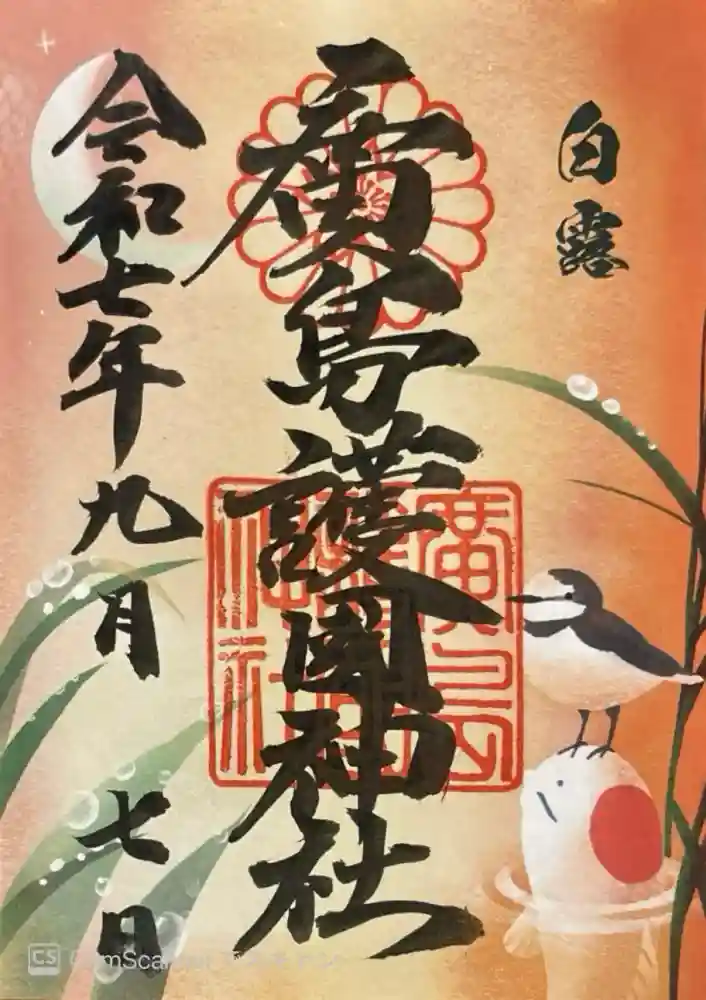 白露
廣島護國神社
令和七年九月七日
CS CamScanner